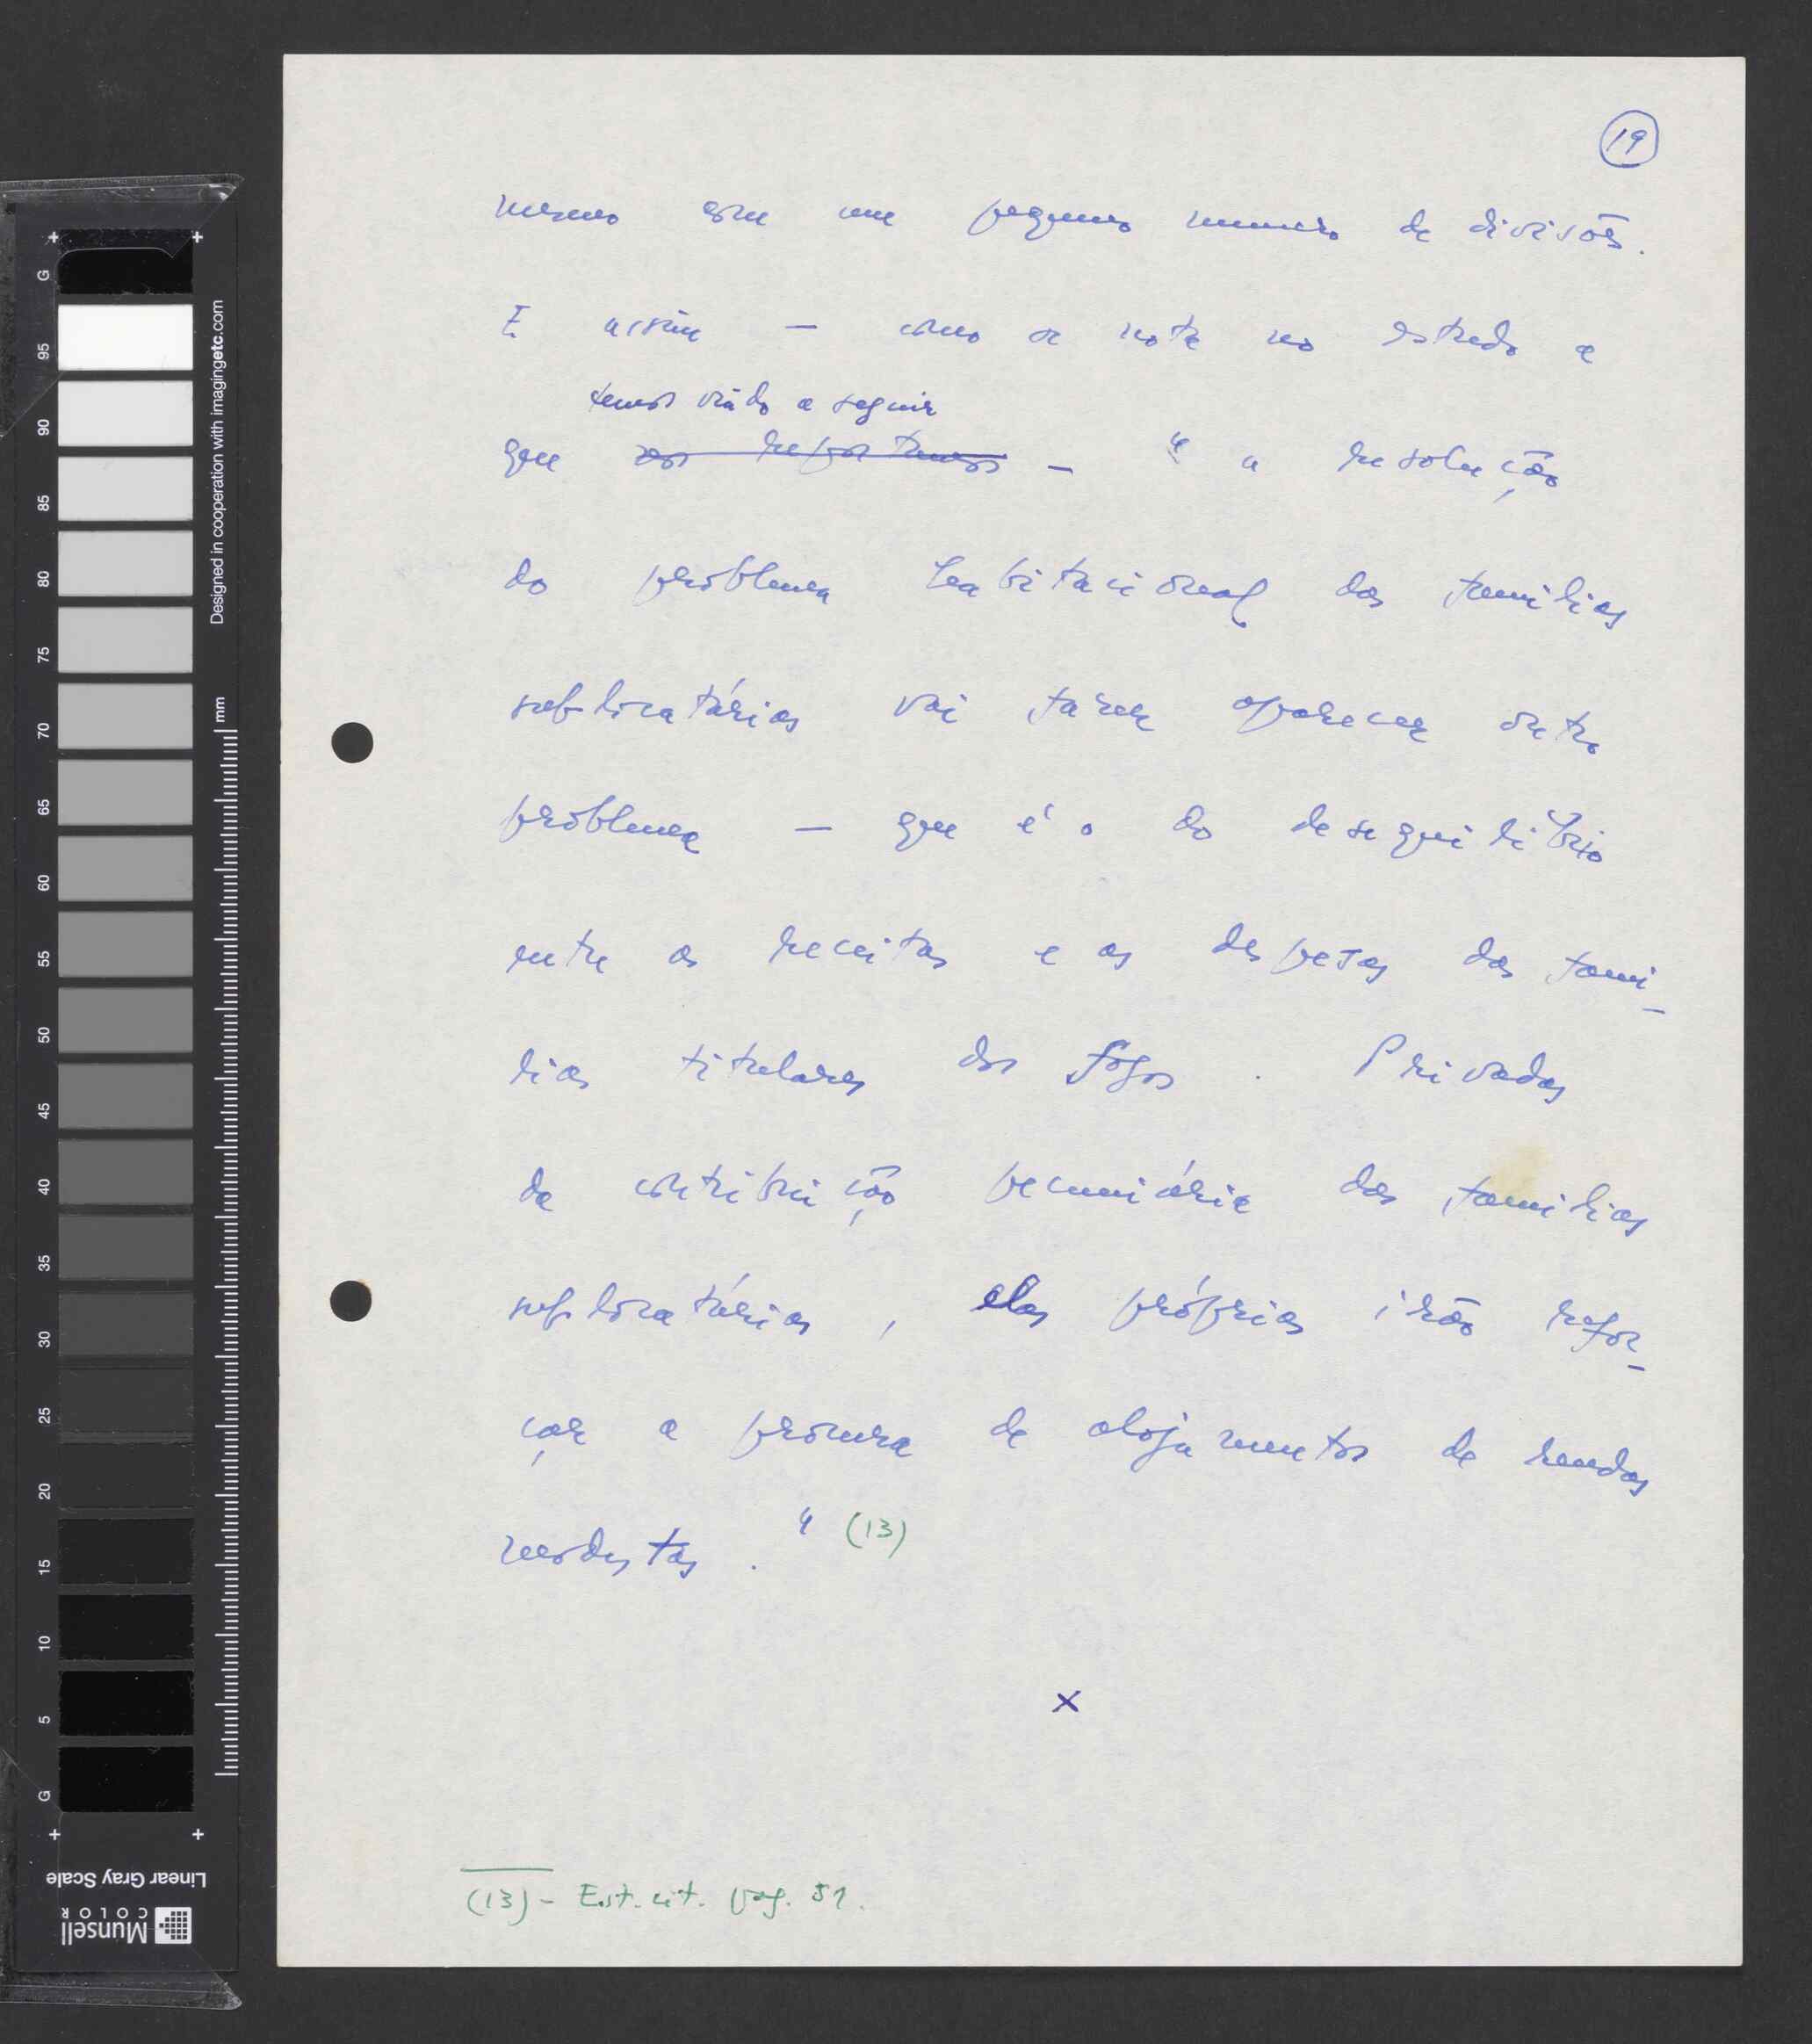 19
mesmo com um pequeno numero de divisões.
E assim — como se nota no estudo a
temos vindo a seguir
que nos reportamos — " a resolução
do problema habitacional das familias
sublocatárias vai fazer aparecer outro
problema — que é o do desequilibrio
entre as receitas e as despesas das fami-
lias titulares dos fogos. Privadas
da contribuição pecuniária das familias
sublocatárias, elas próprias irão refor-
çar a procura de alojamentos de rendas
modestas." (13)
x
(13) - Est. cit. pag. 51.
G
95
90
85
80
75
70
65
60
55
50
45
40
35
30
25
20
15
10
5
G
mm
Designed in cooperation with imagingetc.com
Linear Gray Scale
Munsell
COLOR